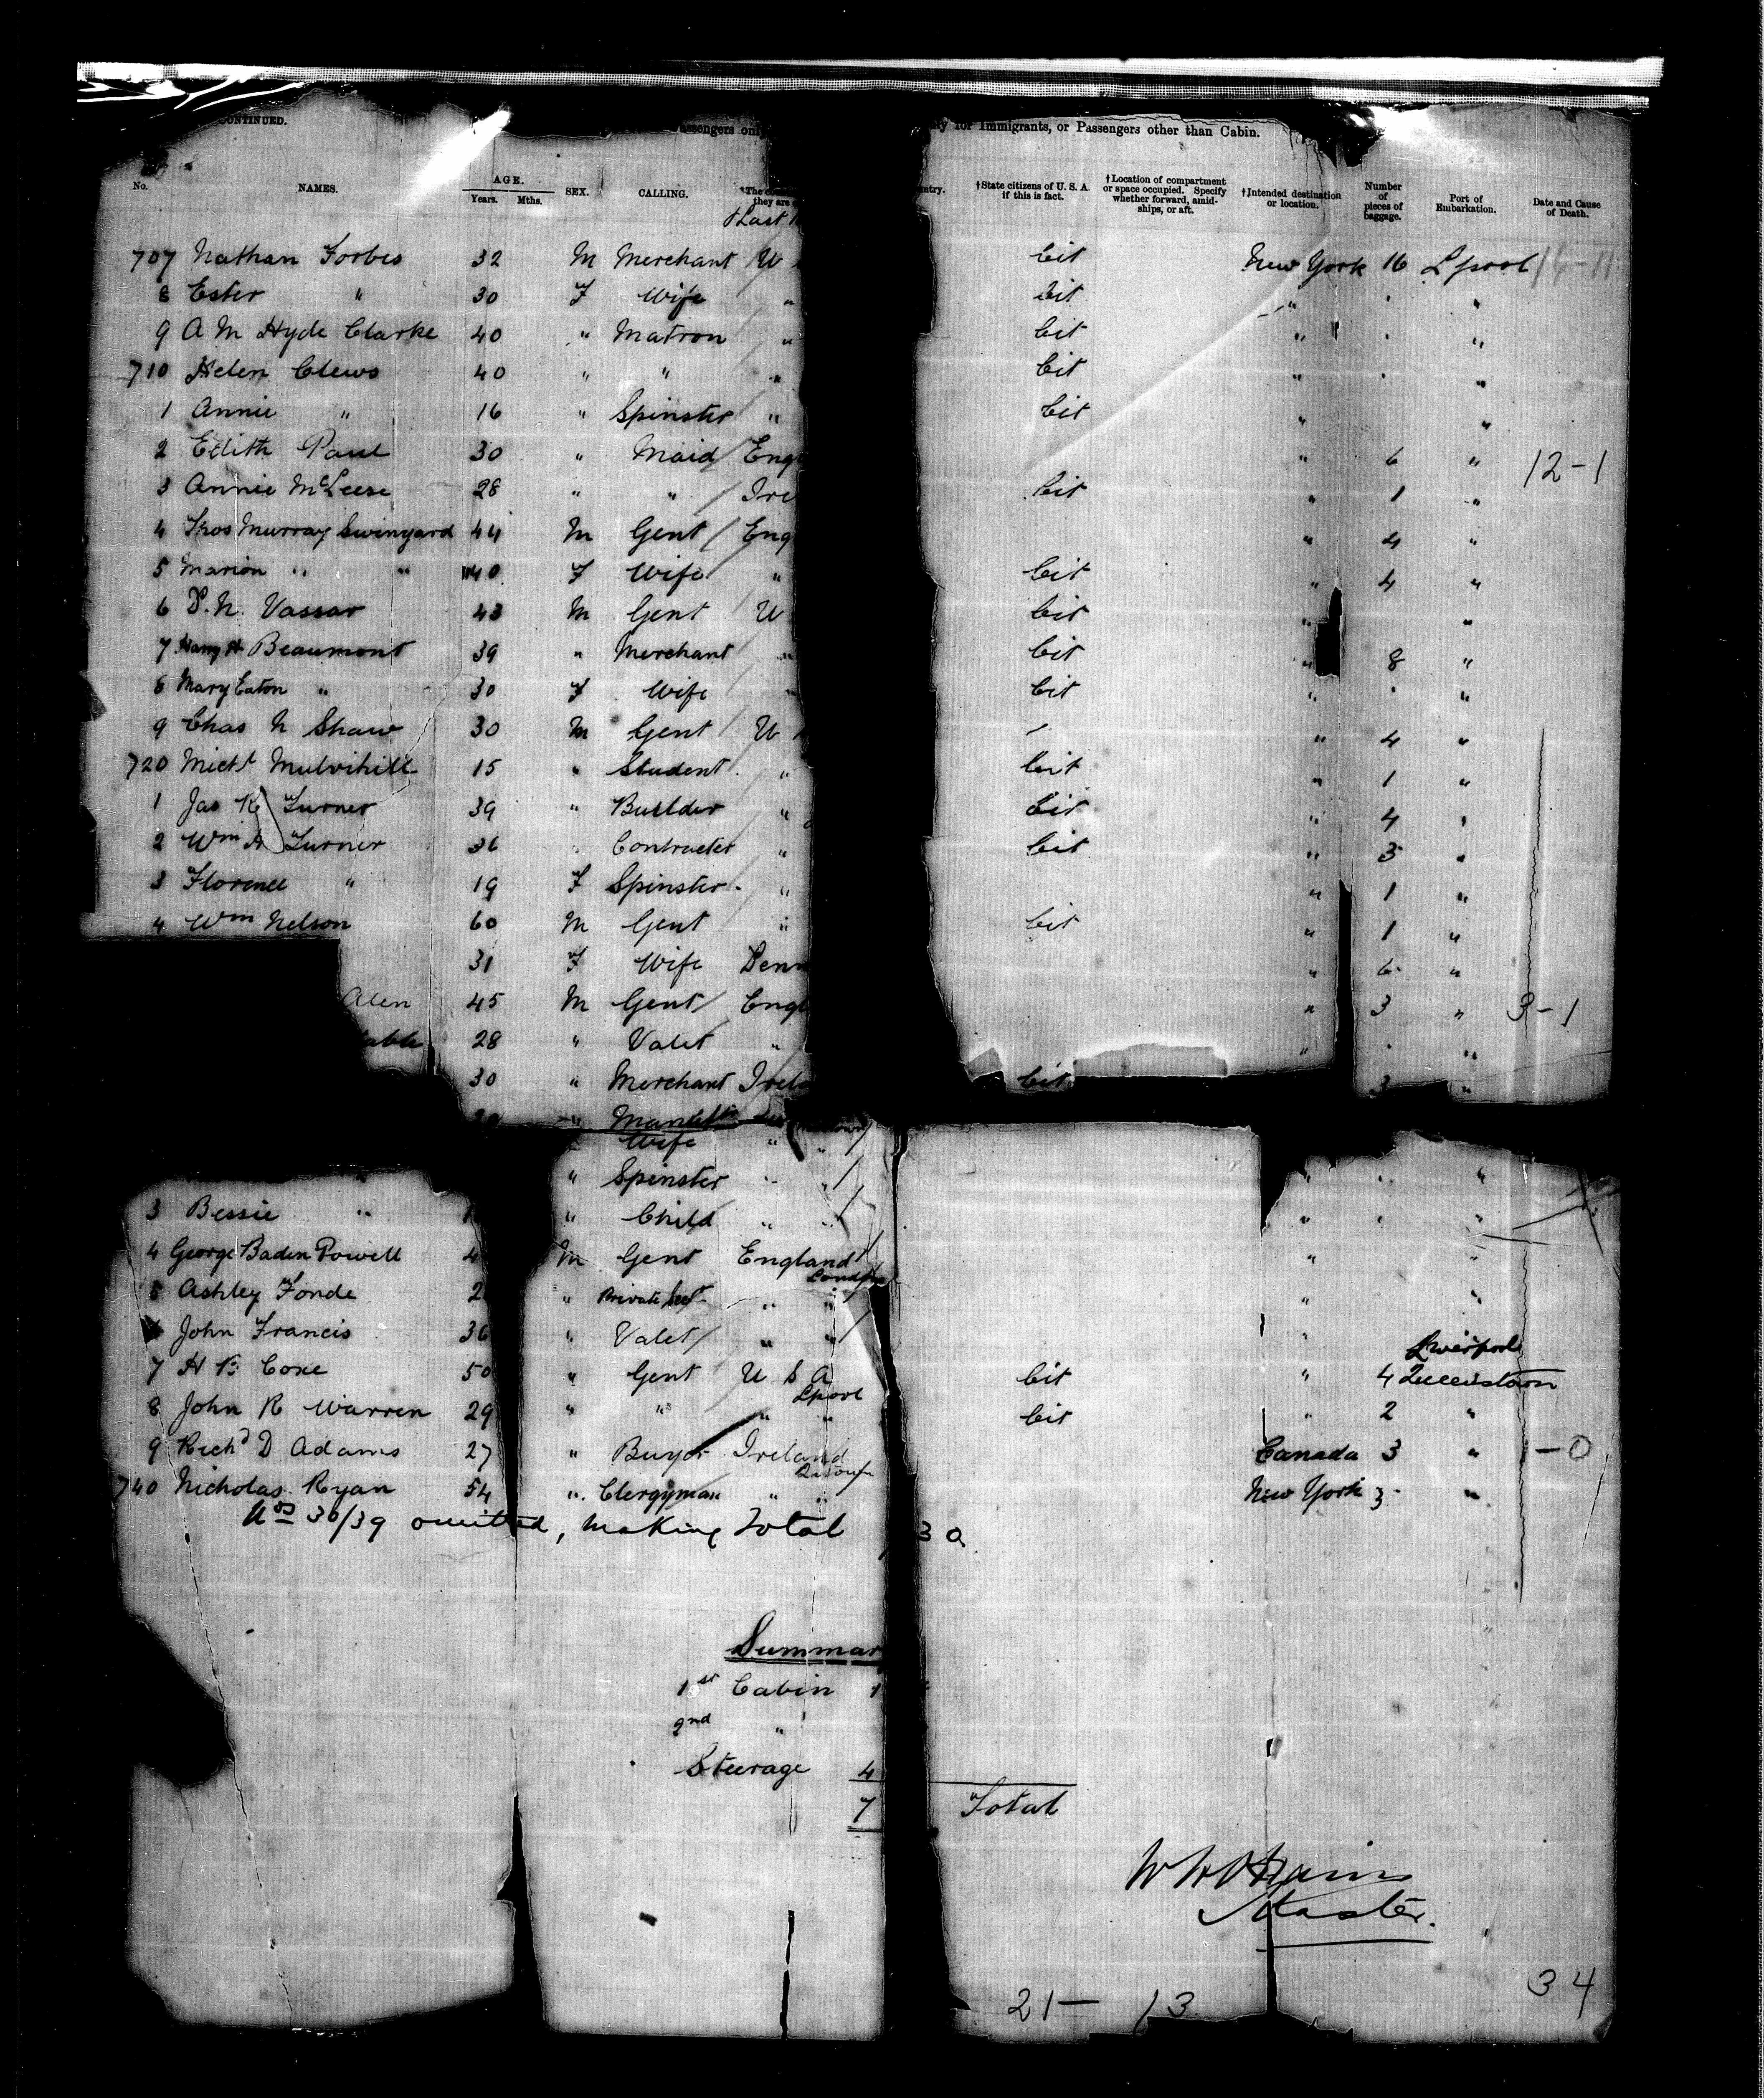 CONTINUED.
assengers only for Immigrants, or Passengers other than Cabin.
No. NAMES. AGE. Years. Mths. SEX. CALLING. *The they are ntry. †State citizens of U. S. A. if this is fact. †Location of compartment or space occupied. Specify whether forward, amid-ships, or aft. †Intended destination or location. Number of pieces of baggage. Port of Embarkation. Date and Cause of Death.
†Last
707 Nathan Forbes 32 M Merchant / U Cit New York 16 Lpool
8 Ester " 30 F Wife " Cit " " "
9 A M Hyde Clarke 40 " Matron " Cit " " "
710 Helen Clews 40 " " " Cit " " "
1 Annie " 16 " Spinster " Cit " "
2 Edith Paul 30 " Maid / Eng " 6 " 12-1
3 Annie McLeese 28 " " / Ire Cit " 1 "
4 Thos Murray Swinyard 44 M Gent / Eng " 4 "
5 Marion " " 40 F Wife " Cit " 4 "
6 P. N. Vassar 43 M Gent / U Cit " "
7 Harry H Beaumont 39 " Merchant " Cit " 8 "
8 Mary Eaton " 30 F Wife " Cit " " "
9 Chas N Shaw 30 M Gent / U " 4 "
720 Michl Mulvihill 15 " Student " Cit " 1 "
1 Jas R Turner 39 " Builder " Cit " 4 "
2 Wm A Turner 36 " Contracter " Cit " 3 "
3 Florence " 19 F Spinster " " 1 "
4 Wm Nelson 60 M Gent " Cit " 1 "
31 F Wife Denn " 6 "
Alen 45 M Gent / Engl " 3 " 3-1
table 28 " Valet " " " "
30 " Merchant Irela Cit 3 "
Wife " "
" Spinster " " " " "
3 Bessie " " Child " " " " "
4 George Baden Powell 4 M Gent England "
London
5 Ashley Fonde 2 " Private Sect " " " "
6 John Francis 36 " Valet / " " "
Liverpool
7 H B Coxe 50 " Gent U S A Cit " 4 Queenstown
Lpool
8 John R Warren 29 " " " " Cit " 2 "
9 Richd D Adams 27 " Buyer Ireland Canada 3 " -0
740 Nicholas Ryan 54 " Clergyman " " New York 3 "
Nos 36/39 omitted, making Total
Summar
1st Cabin 1
2nd "
Steerage 4
7 Total
Master.
34
21- 13